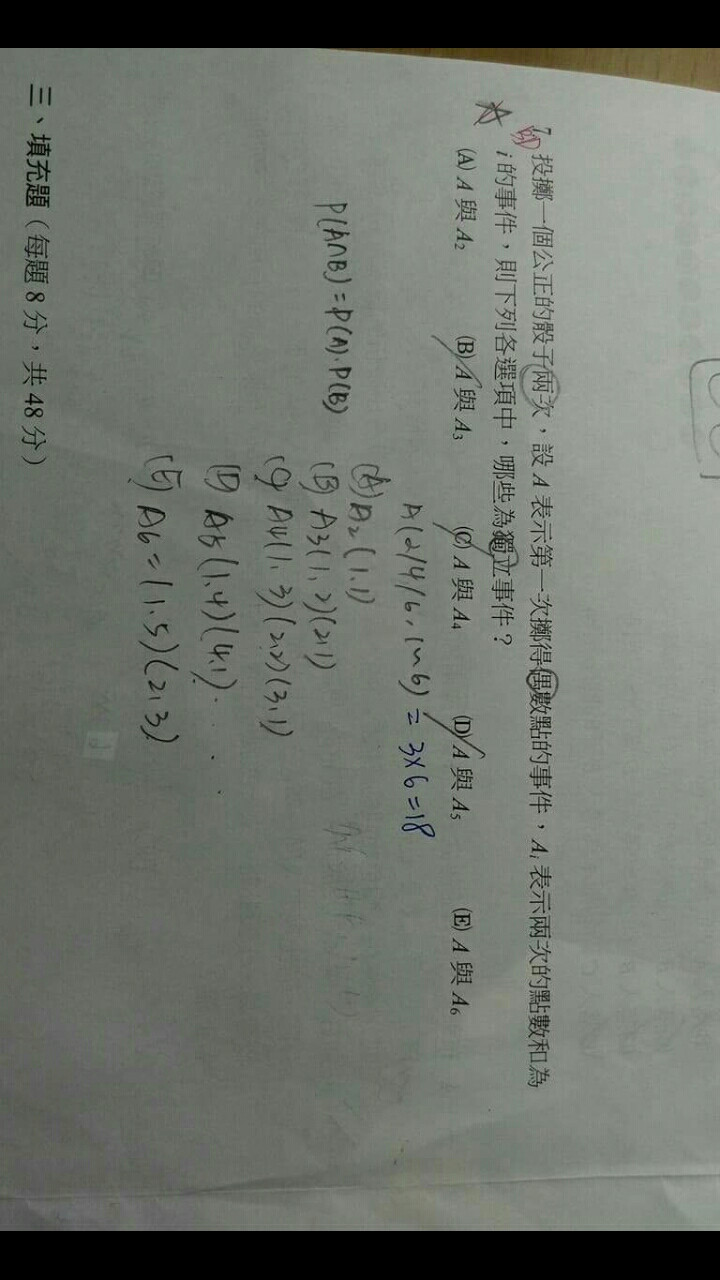 7. 投擲一個公正的骰子兩次，設 A 表示第一次擲得偶數點的事件，Aᵢ 表示兩次的點數和為
i 的事件，則下列各選項中，哪些為獨立事件？
(A) A 與 A₂ (B) A 與 A₃ (C) A 與 A₄ (D) A 與 A₅ (E) A 與 A₆
A(2/4/6, 1~6) = 3×6=18
P(A∩B)=P(A)·P(B)
(A) A₂(1,1)
(B) A₃(1,2)(2,1)
(C) A₄(1,3)(2,2)(3,1)
(D) A₅(1,4)(4,1)...
(E) A₆=(1,5)(2,3)
三、填充題（每題 8 分，共 48 分）